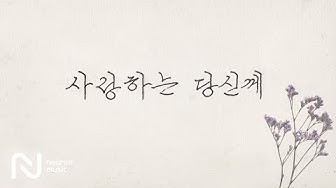 사랑하는 당신께
neuron
music